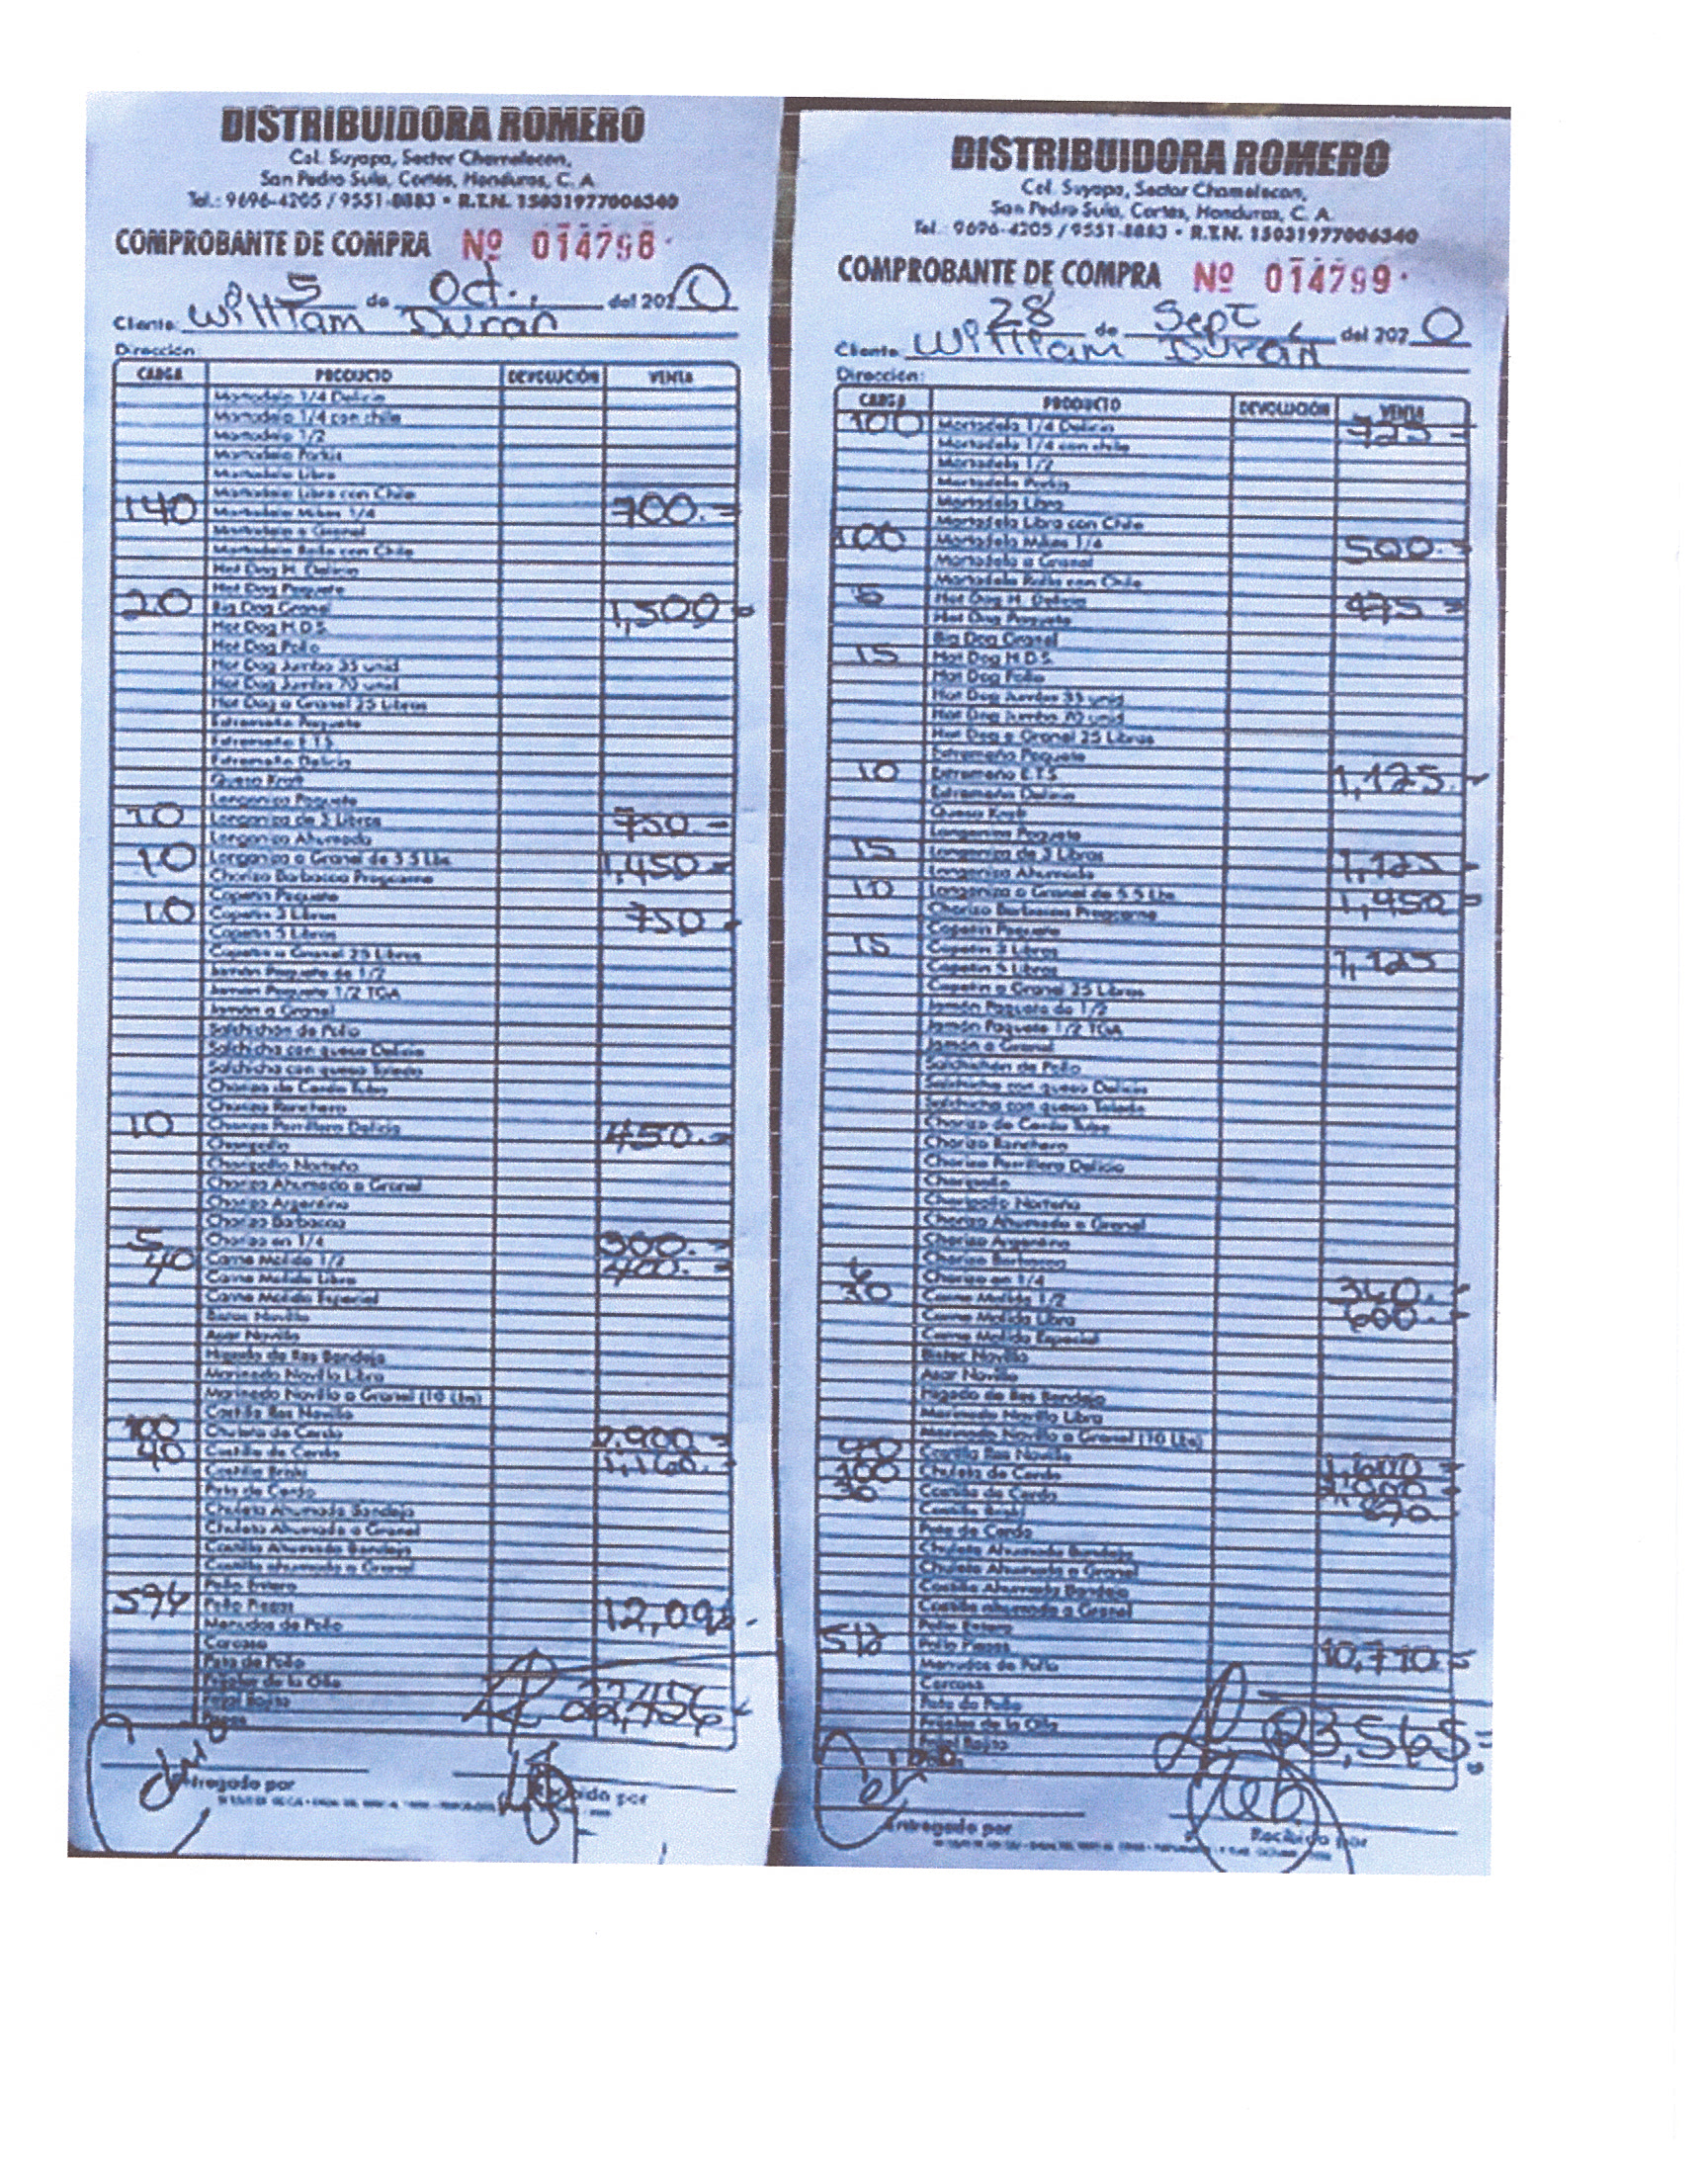 DISTRIBUIDORA ROMERO
Col. Suyapa, Sector Chamelecon,
San Pedro Sula, Cortés, Honduras, C. A
Tel.: 9696-4205 / 9551-8883 • R.T.N. 15031977006340
COMPROBANTE DE COMPRA Nº 014798
5 de Oct. del 2020
Cliente: William Duran
Dirección:
CARGA PRODUCTO DEVOLUCIÓN VENTA
Mortadela 1/4 Delicia
Mortadela 1/4 con chile
Mortadela 1/2
Mortadela
Mortadela Libra
Mortadela Libra con Chile
140 Mortadela 1/4 700.=
Mortadela a Granel
Mortadela Rollo con Chile
Hot Dog H. Delicia
Hot Dog Paquete
20 Big Dog Granel 1,500=
Hot Dog H.D.S.
Hot Dog Pollo
Hot Dog Jumbo 35 unid
Hot Dog Jumbo 70 unid
Hot Dog a Granel 25 Libras
Extremeño Paquete
Extremeño E.T.S.
Extremeño Delicia
Queso Kraft
Longaniza Paquete
10 Longaniza de 3 Libras 750.=
Longaniza Ahumada
10 Longaniza a Granel de 5.5 Lbs. 1,450=
Chorizo Barbacoa Progcarne
Copetin Paquete
10 Copetin 3 Libras 750=
Copetin 5 Libras
Copetin a Granel 25 Libras
Jamón Paquete de 1/2
Jamón Paquete 1/2 TGA
Jamón a Granel
Salchichón de Pollo
Salchicha con queso Delicia
Salchicha con queso Toledo
Chorizo de Cerdo Tubo
Chorizo Ranchero
10 Chorizo Parrillero Delicia 450.=
Choripollo
Choripollo Norteño
Chorizo Ahumado a Granel
Chorizo Argentino
Chorizo Barbacoa
5 Chorizo en 1/4 300.=
40 Carne Molida 1/2 400.=
Carne Molida Libra
Carne Molida Especial
Bistec Novillo
Asar Novillo
Higado de Res Bandeja
Marinado Novillo Libra
Marinado Novillo a Granel (10 Lbs)
Costilla Res Novillo
100 Chuleta de Cerdo 2,900.=
40 Costilla de Cerdo 1,160.=
Costilla
Pata de Cerdo
Chuleta Ahumada Bandeja
Chuleta Ahumada a Granel
Costilla Ahumada Bandeja
Costilla ahumada a Granel
Pollo Entero
Pollo Piezas
Menudos de Pollo
Carcasa
Pata de Pollo
Frijoles de la Olla
22,456
Entregado por Recibido por
DISTRIBUIDORA ROMERO
Col. Suyapa, Sector Chamelecon,
San Pedro Sula, Cortés, Honduras, C. A.
Tel.: 9696-4205 / 9551-8883 • R.T.N. 15031977006340
COMPROBANTE DE COMPRA Nº 014799
28 de Sept. del 2020
Cliente William Duran
Dirección:
CARGA PRODUCTO DEVOLUCIÓN VENTA
100 Mortadela 1/4 Delicia 725=
Mortadela 1/4 con chile
Mortadela 1/2
Mortadela
Mortadela Libra
Mortadela Libra con Chile
100 Mortadela 1/4 500.=
Mortadela a Granel
Mortadela Rollo con Chile
Hot Dog H. Delicia 475=
Hot Dog Paquete
Big Dog Granel
15 Hot Dog H.D.S.
Hot Dog Pollo
Hot Dog Jumbo 35 unid
Hot Dog Jumbo 70 unid
Hot Dog a Granel 25 Libras
Extremeño Paquete
10 Extremeño E.T.S. 1,125.
Extremeño Delicia
Queso Kraft
Longaniza Paquete
15 Longaniza de 3 Libras 1,125=
Longaniza Ahumada
10 Longaniza a Granel de 5.5 Lbs.
Chorizo Barbacoa Progcarne
Copetin Paquete
15 Copetin 3 Libras 1,125
Copetin 5 Libras
Copetin a Granel 25 Libras
Jamón Paquete de 1/2
Jamón Paquete 1/2 TGA
Jamón a Granel
Salchichón de Pollo
Salchicha con queso Delicia
Salchicha con queso Toledo
Chorizo de Cerdo Tubo
Chorizo Ranchero
Chorizo Parrillero Delicia
Choripollo
Choripollo Norteño
Chorizo Ahumado a Granel
Chorizo Argentino
Chorizo Barbacoa
6 Chorizo en 1/4 360.=
30 Carne Molida 1/2 600.=
Carne Molida Libra
Carne Molida Especial
Bistec Novillo
Asar Novillo
Higado de Res Bandeja
Marinado Novillo Libra
Marinado Novillo a Granel (10 Lbs)
Costilla Res Novillo
100 Chuleta de Cerdo
30 Costilla de Cerdo 870
Costilla
Pata de Cerdo
Chuleta Ahumada Bandeja
Chuleta Ahumada a Granel
Costilla Ahumada Bandeja
Costilla ahumada a Granel
Pollo Entero
Pollo Piezas 10,710.=
Menudos de Pollo
Carcasa
Pata de Pollo
Frijoles de la Olla
23,565=
Entregado por Recibido por